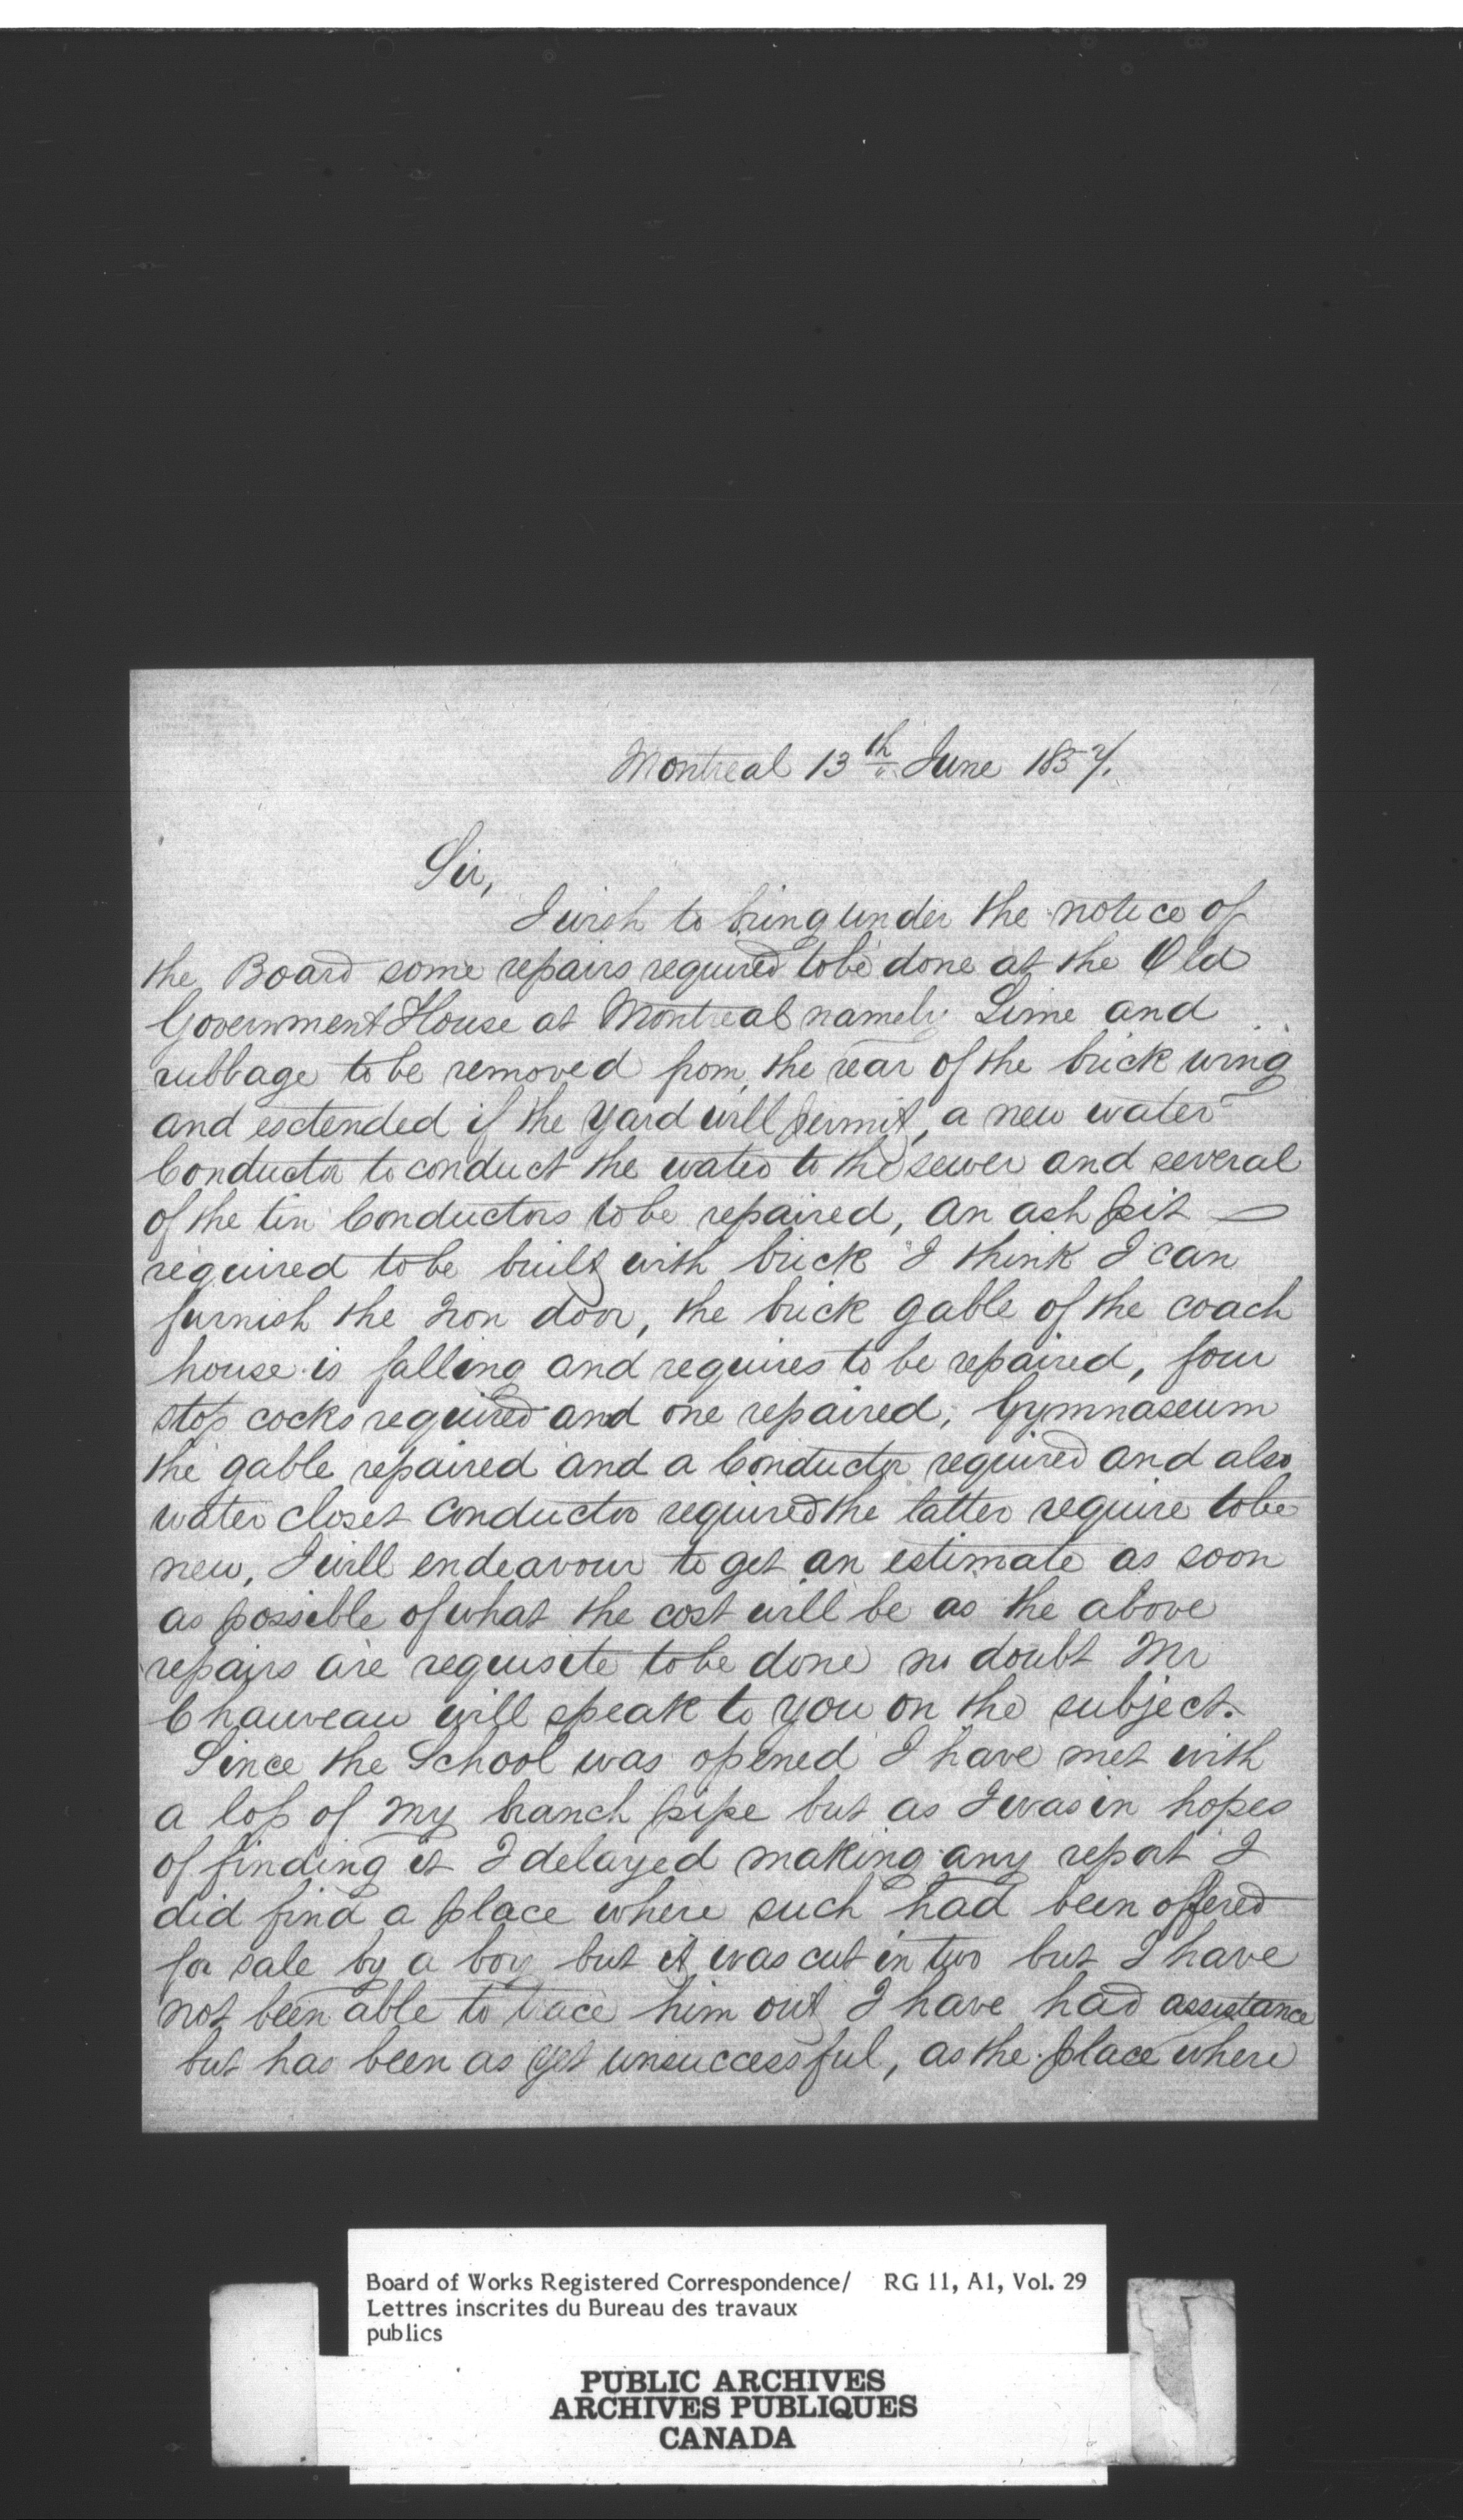 Montreal 13th June 1857.
Sir,
I wish to bring under the notice of
the Board some repairs required to be done at the Old
Government House at Montreal namely Lime and
rubbage to be removed from the rear of the brick wing
and extended if the yard will permit, a new water
Conductor to conduct the water to the sewer and several
of the tin Conductors to be repaired, an ash pit
required to be built with brick I think I can
furnish the Iron door, the brick gable of the coach
house is falling and requires to be repaired, four
stop cocks required and one repaired, Gymnaseum
the gable repaired and a Conductor required and also
water closet conductor required the latter require to be
new, I will endeavour to get an estimate as soon
as possible of what the cost will be as the above
repairs are requisite to be done no doubt Mr
Chauveau will speak to you on the subject.
Since the School was opened I have met with
a loss of my branch pipe but as I was in hopes
of finding it I delayed making any report I
did find a place where such had been offered
for sale by a boy but it was cut in two but I have
not been able to trace him out I have had assistance
but has been as yet unsuccessful, as the place where
Board of Works Registered Correspondence/ RG 11, A1, Vol. 29
Lettres inscrites du Bureau des travaux
publics
PUBLIC ARCHIVES
ARCHIVES PUBLIQUES
CANADA